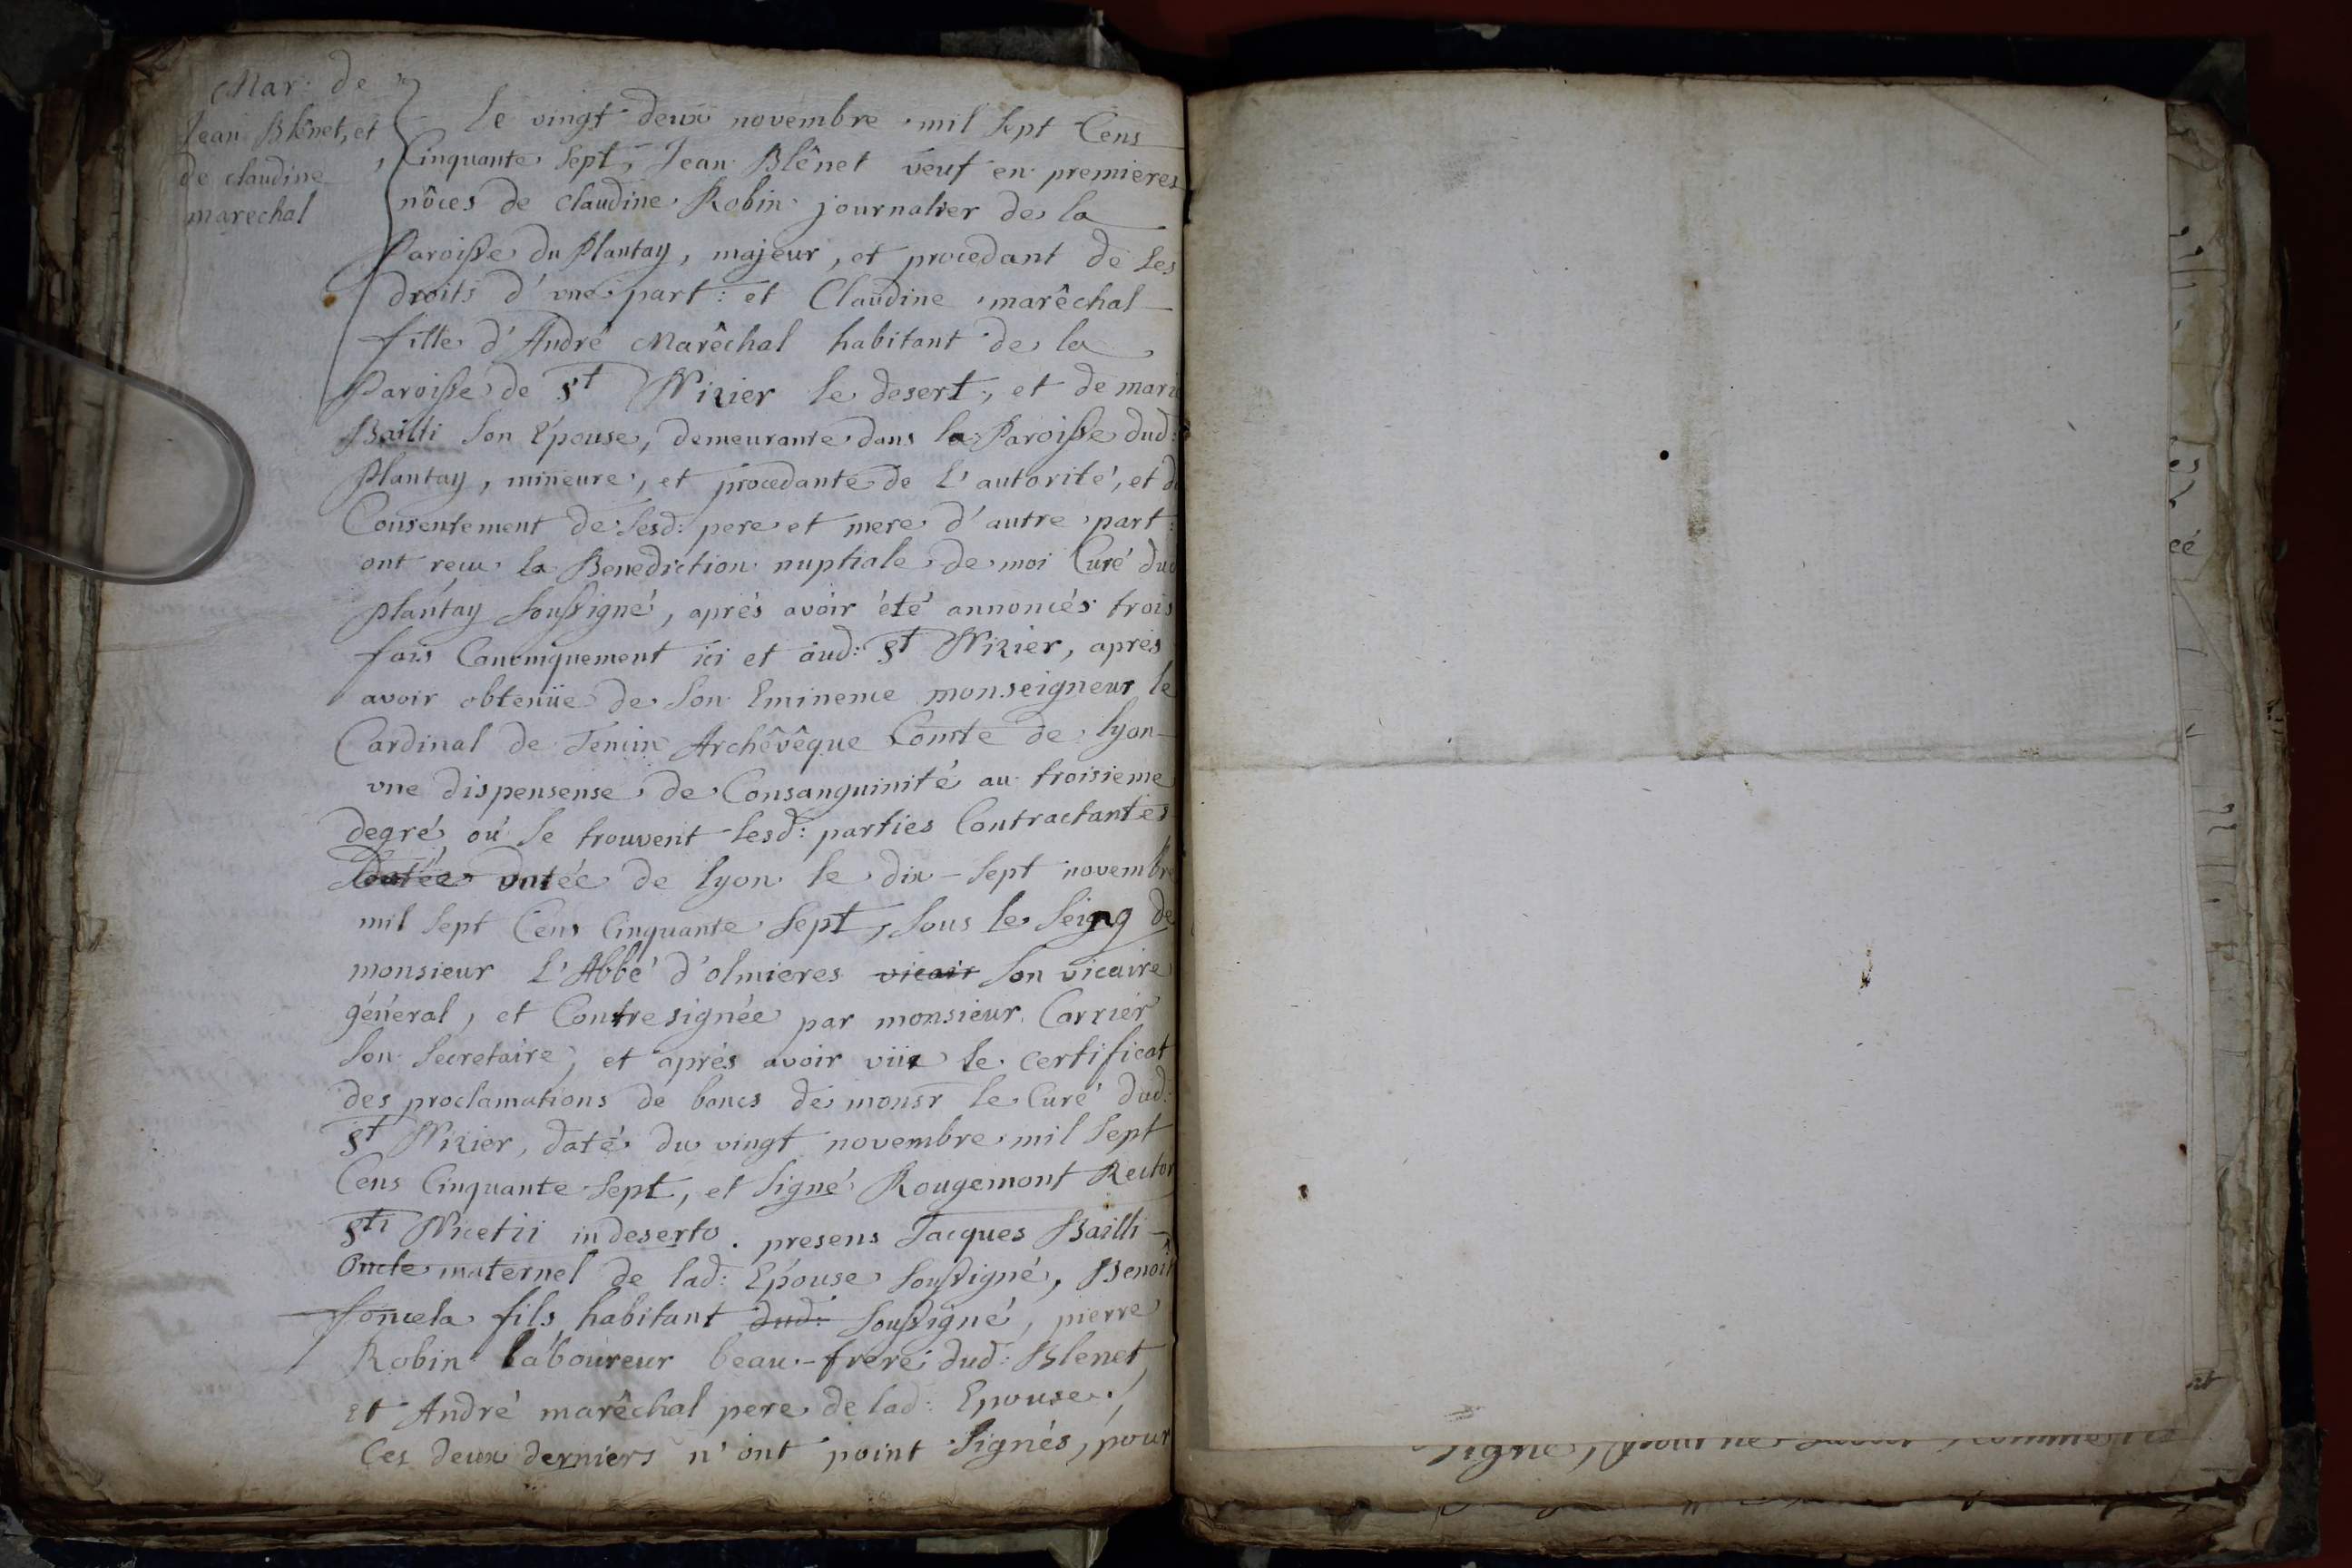 Mar: de
Jean Blênet, et
de claudine
marechal
Le vingt deux novembre mil sept Cens
Cinquante sept, Jean Blênet veuf en premieres
nôces de claudine Robin journalier de la
Paroisse du Plantay, majeur, et procedant de ses
droits d'une part: et Claudine marêchal
fille d'André Marêchal habitant de la
Paroisse de St Nizier le desert, et de marie
Bailli son Epouse, demeurante dans la Paroisse dud:
Plantay, mineure, et procedante de l'autorité, et du
Consentement de sesd: pere et mere d'autre part:
ont reçu la Benediction nuptiale de moi Curé dud
plantay soussigné, aprés avoir été annoncés trois
fois Canoniquement ici et aud: St Nizier, aprés
avoir obtenüe de son Eminence monseigneur le
Cardinal de Tencin Archêvêque Comte de Lyon
une dispensense de Consanguinité au troisieme
degré, où se trouvent lesd: parties Contractantes
datée de Lyon le dix-sept novembre
mil sept Cens Cinquante sept, sous le seing de
monsieur l'Abbé d'olmieres vicair son vicaire
général, et Contresignée par monsieur Carrier
son secretaire, et aprés avoir vüe le certificat
des proclamations de bancs de monsr le Curé dud:
St Nizier, daté du vingt novembre mil sept
Cens Cinquante sept, et signé Rougemont Rector
Sti Nicetii in deserto. presens Jacques Bailli
Oncle maternel de lad: Epouse soussigné, Benoit
foncela fils, habitant dud: soussigné, pierre
Robin laboureur beau-frere dud: Blenet
et André marêchal pere de lad: Epouse.
Ces deux derniers n'ont point signés, pour
signé, pour ne